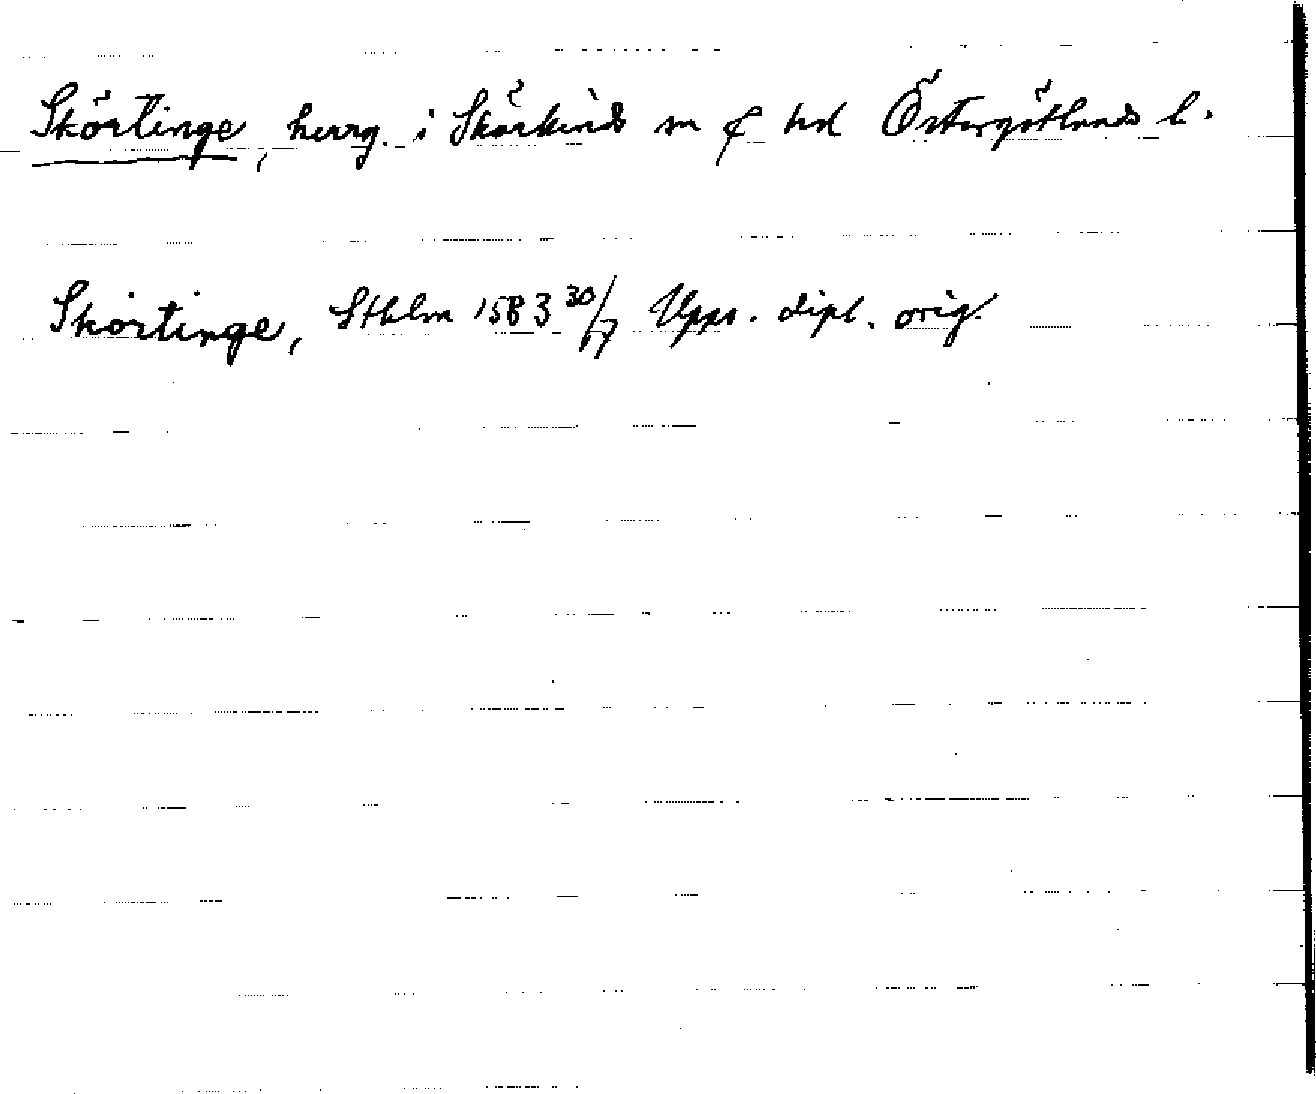 Skörtinge, herrg. i Skärkinds sn o hd Östergötlands l.
Skortinge, Sthlm 1583 30/7 Upps. dipl. orig.